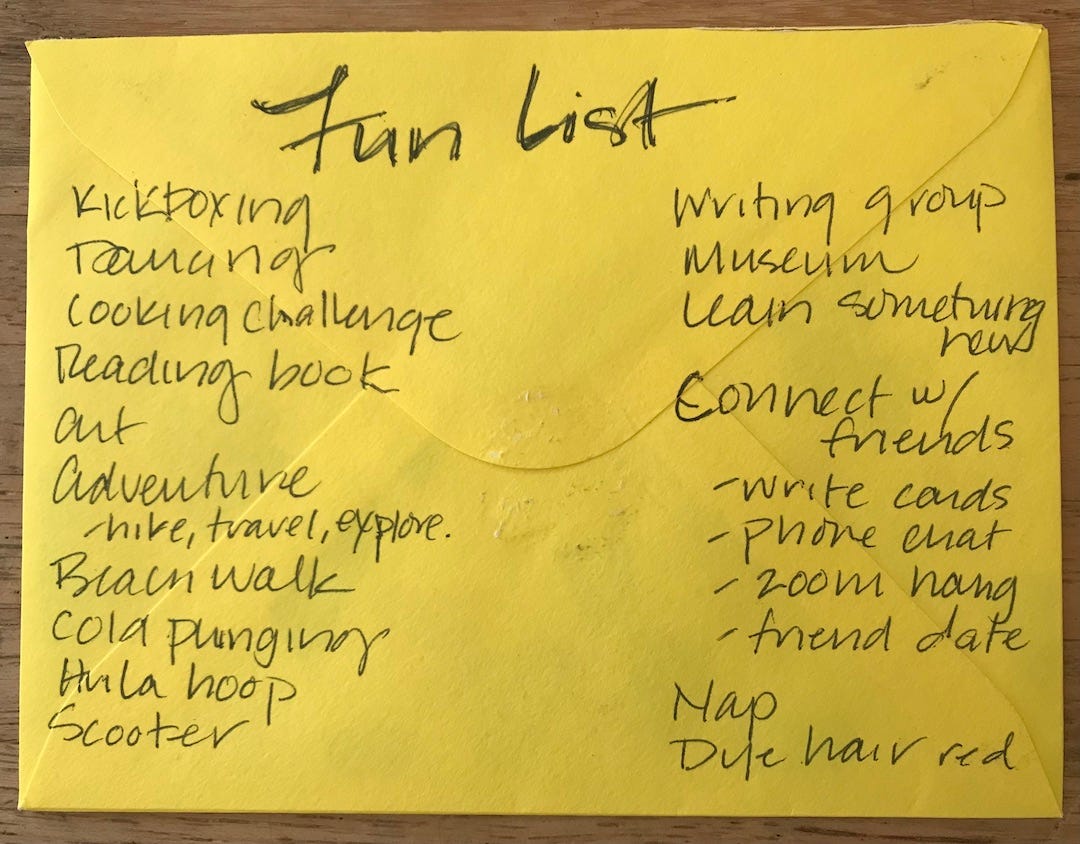 Fun List
Kickboxing
Dancing
Cooking challenge
Reading book
Art
Adventure
-hike, travel, explore.
Beach walk
Cold plunging
Hula hoop
Scooter
Writing group
Museum
Learn something
new
Connect w/
friends
-write cards
-phone chat
-zoom hang
-friend date
Nap
Dye hair red